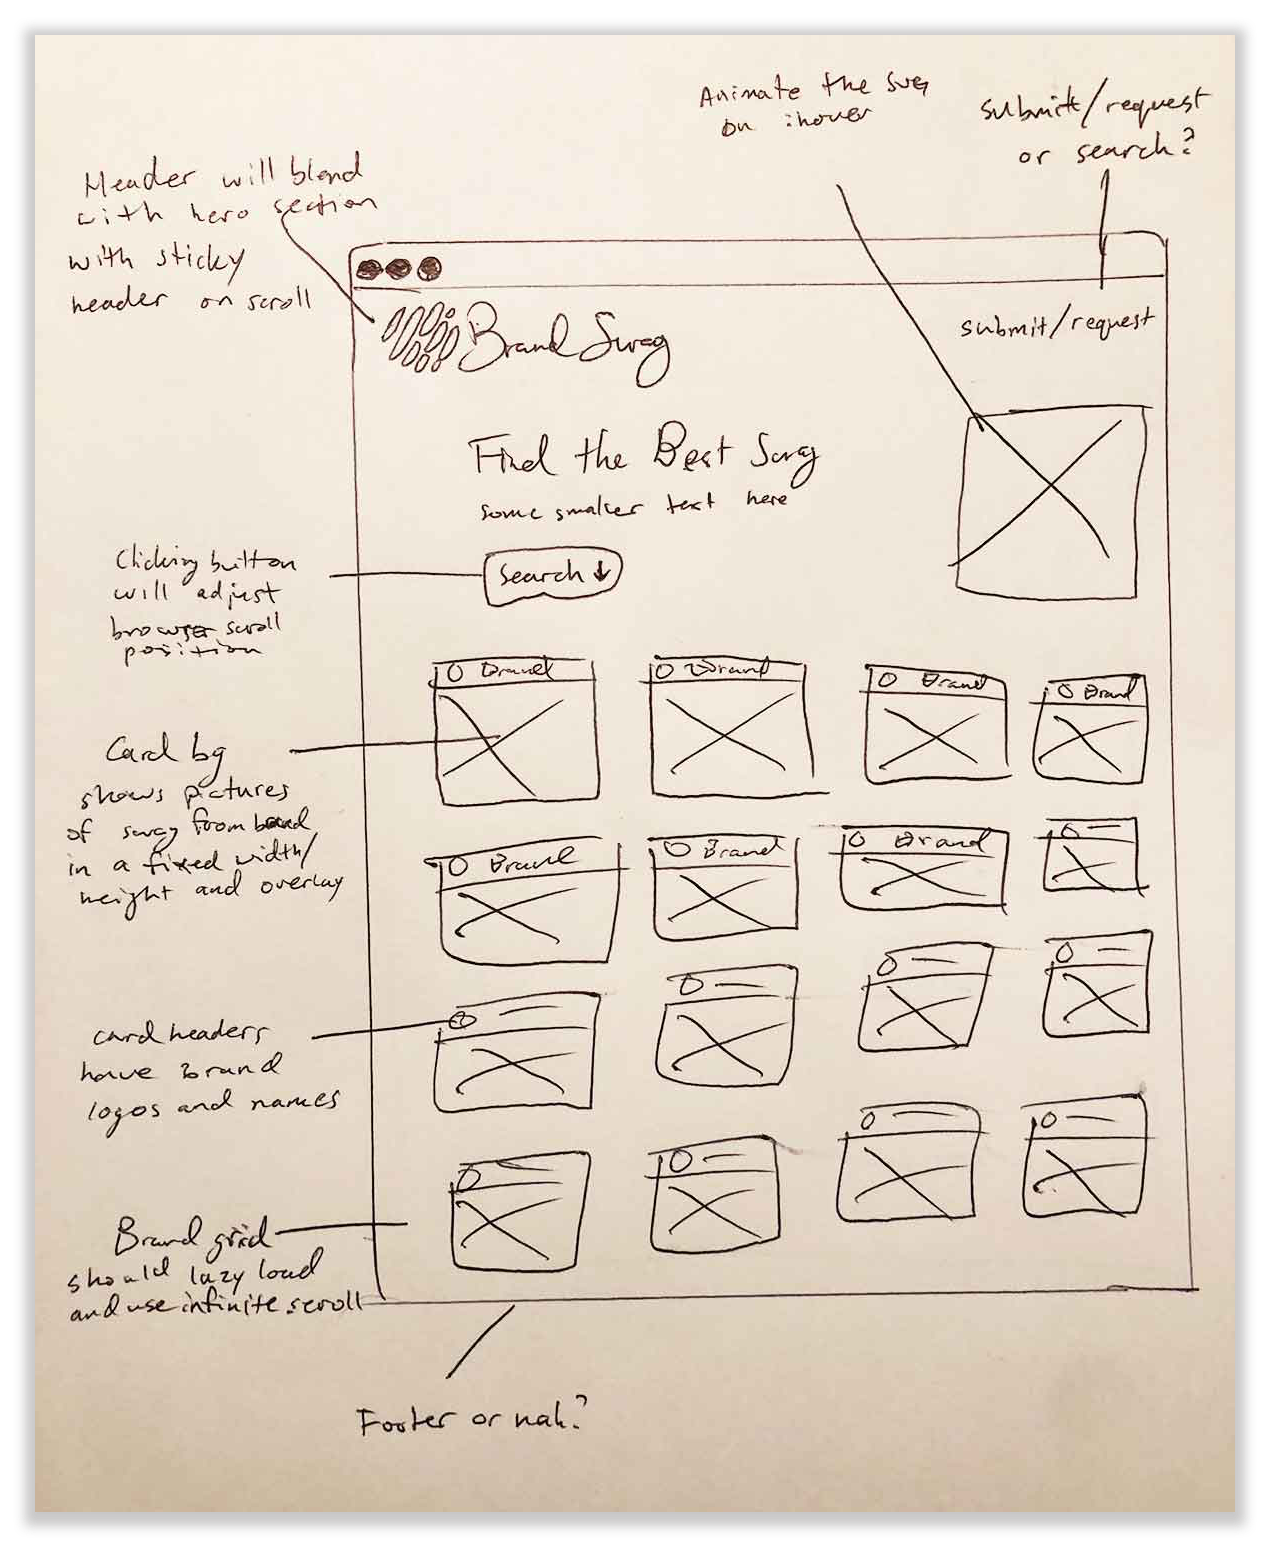 Animate the SVG
on hover
submit/request
or search?
Header will blend
with hero section
with sticky
header on scroll
Brand Swag
submit/request
Find the Best Swag
some smaller text here
Clicking button
will adjust
browser scroll
position
Search ↓
Brand
Brand
Brand
Brand
Card bg
shows pictures
of swag from brand
in a fixed width/
height and overlay
Brand
Brand
Brand
card headers
have brand
logos and names
Brand grid
should lazy load
and use infinite scroll
Footer or nah?